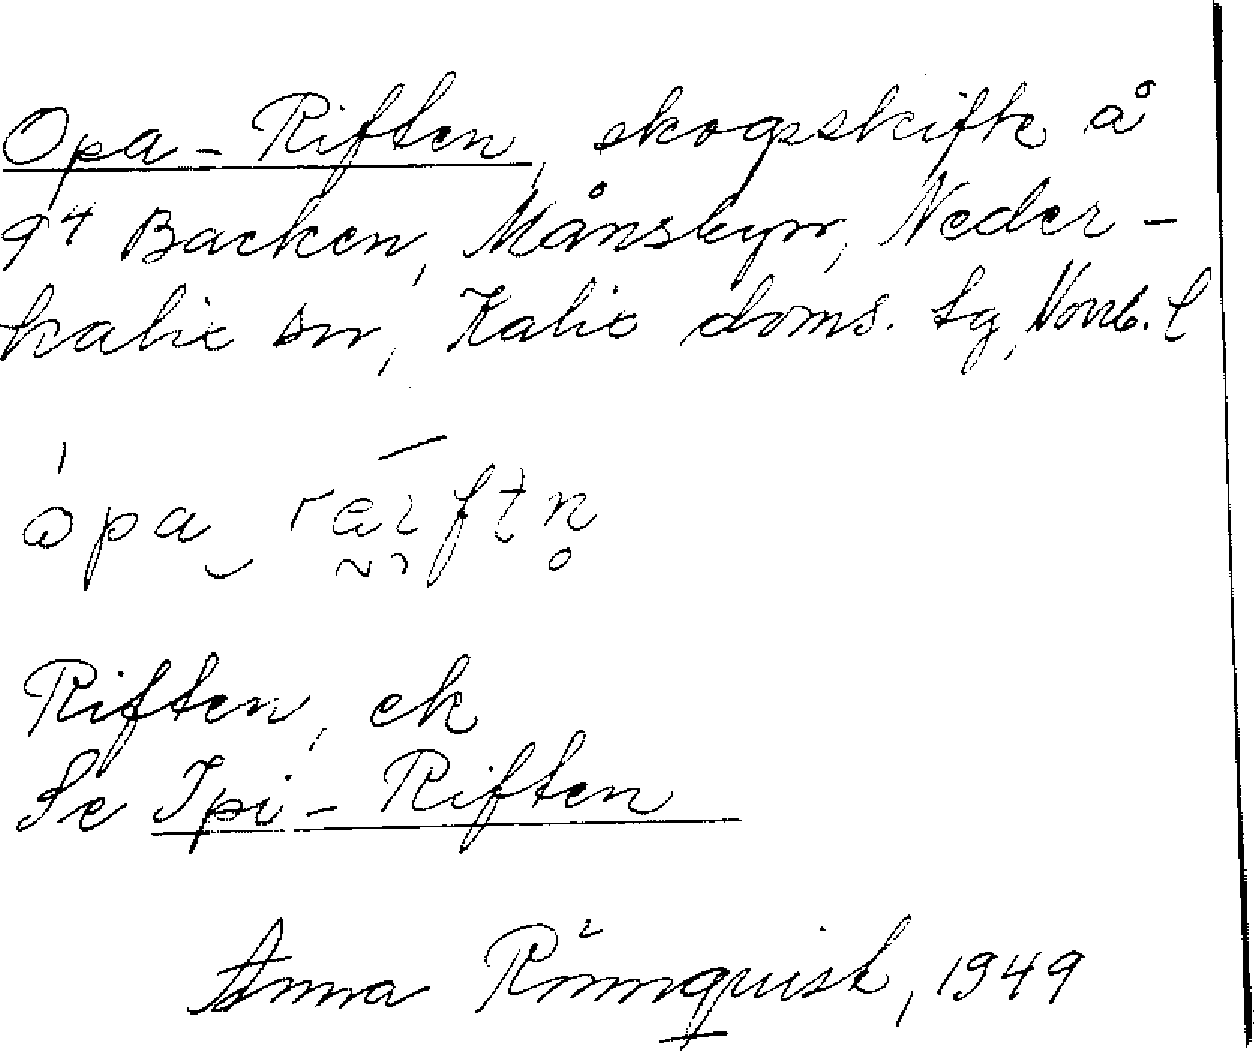 Opa-Riften, skogsskifte å
9⁴ Backen, Månsbyn, Neder-
kalix sn, Kalix doms. tg, Norrb. l
Riften, ek
Se Ipi-Riften
Anna Rönnquist, 1949